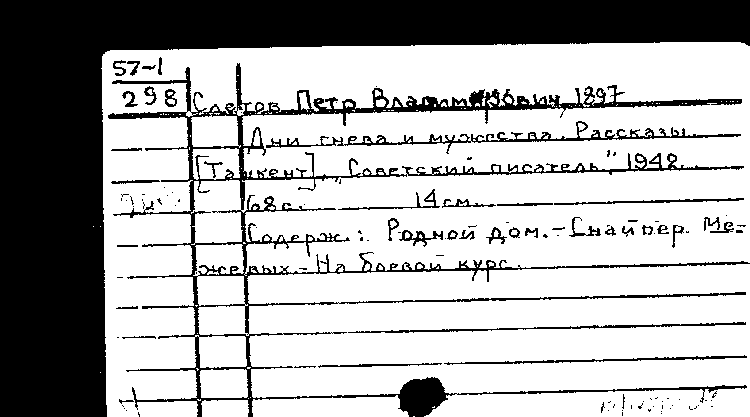 57-1
298 Слетов Петр Владимирович, 1897
Дни гнева и мужества. Рассказы.
[Ташкент], „Советский писатель", 1942.
68с. 14см.
Содерж.: Родной дом.-Снайпер. Ме-
жевых.-На боевой курс.